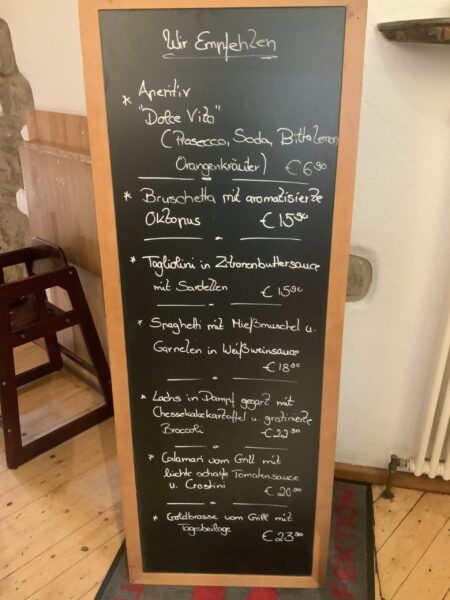 Wir Empfehlen
* Aperitiv
"Dolce Vita"
(Prosecco, Soda, Bitter Lemon
Orangenkräuter) € 6.90
* Bruschetta mit aromatisierte
Oktopus € 15.90
* Tagliolini in Zitronenbuttersauce
mit Sardellen € 15.90
* Spaghetti mit Mießmuschel u.
Garnelen in Weißweinsauce
€ 18.90
* Lachs in Dampf gegart mit
Chessekakekartoffel u. gratinierte
Broccoli € 22.90
* Calamari vom Grill mit
leichte scharfe Tomatensauce
u. Crostini € 20.90
* Goldbrasse vom Grill mit
Tagesbeilage € 23.90